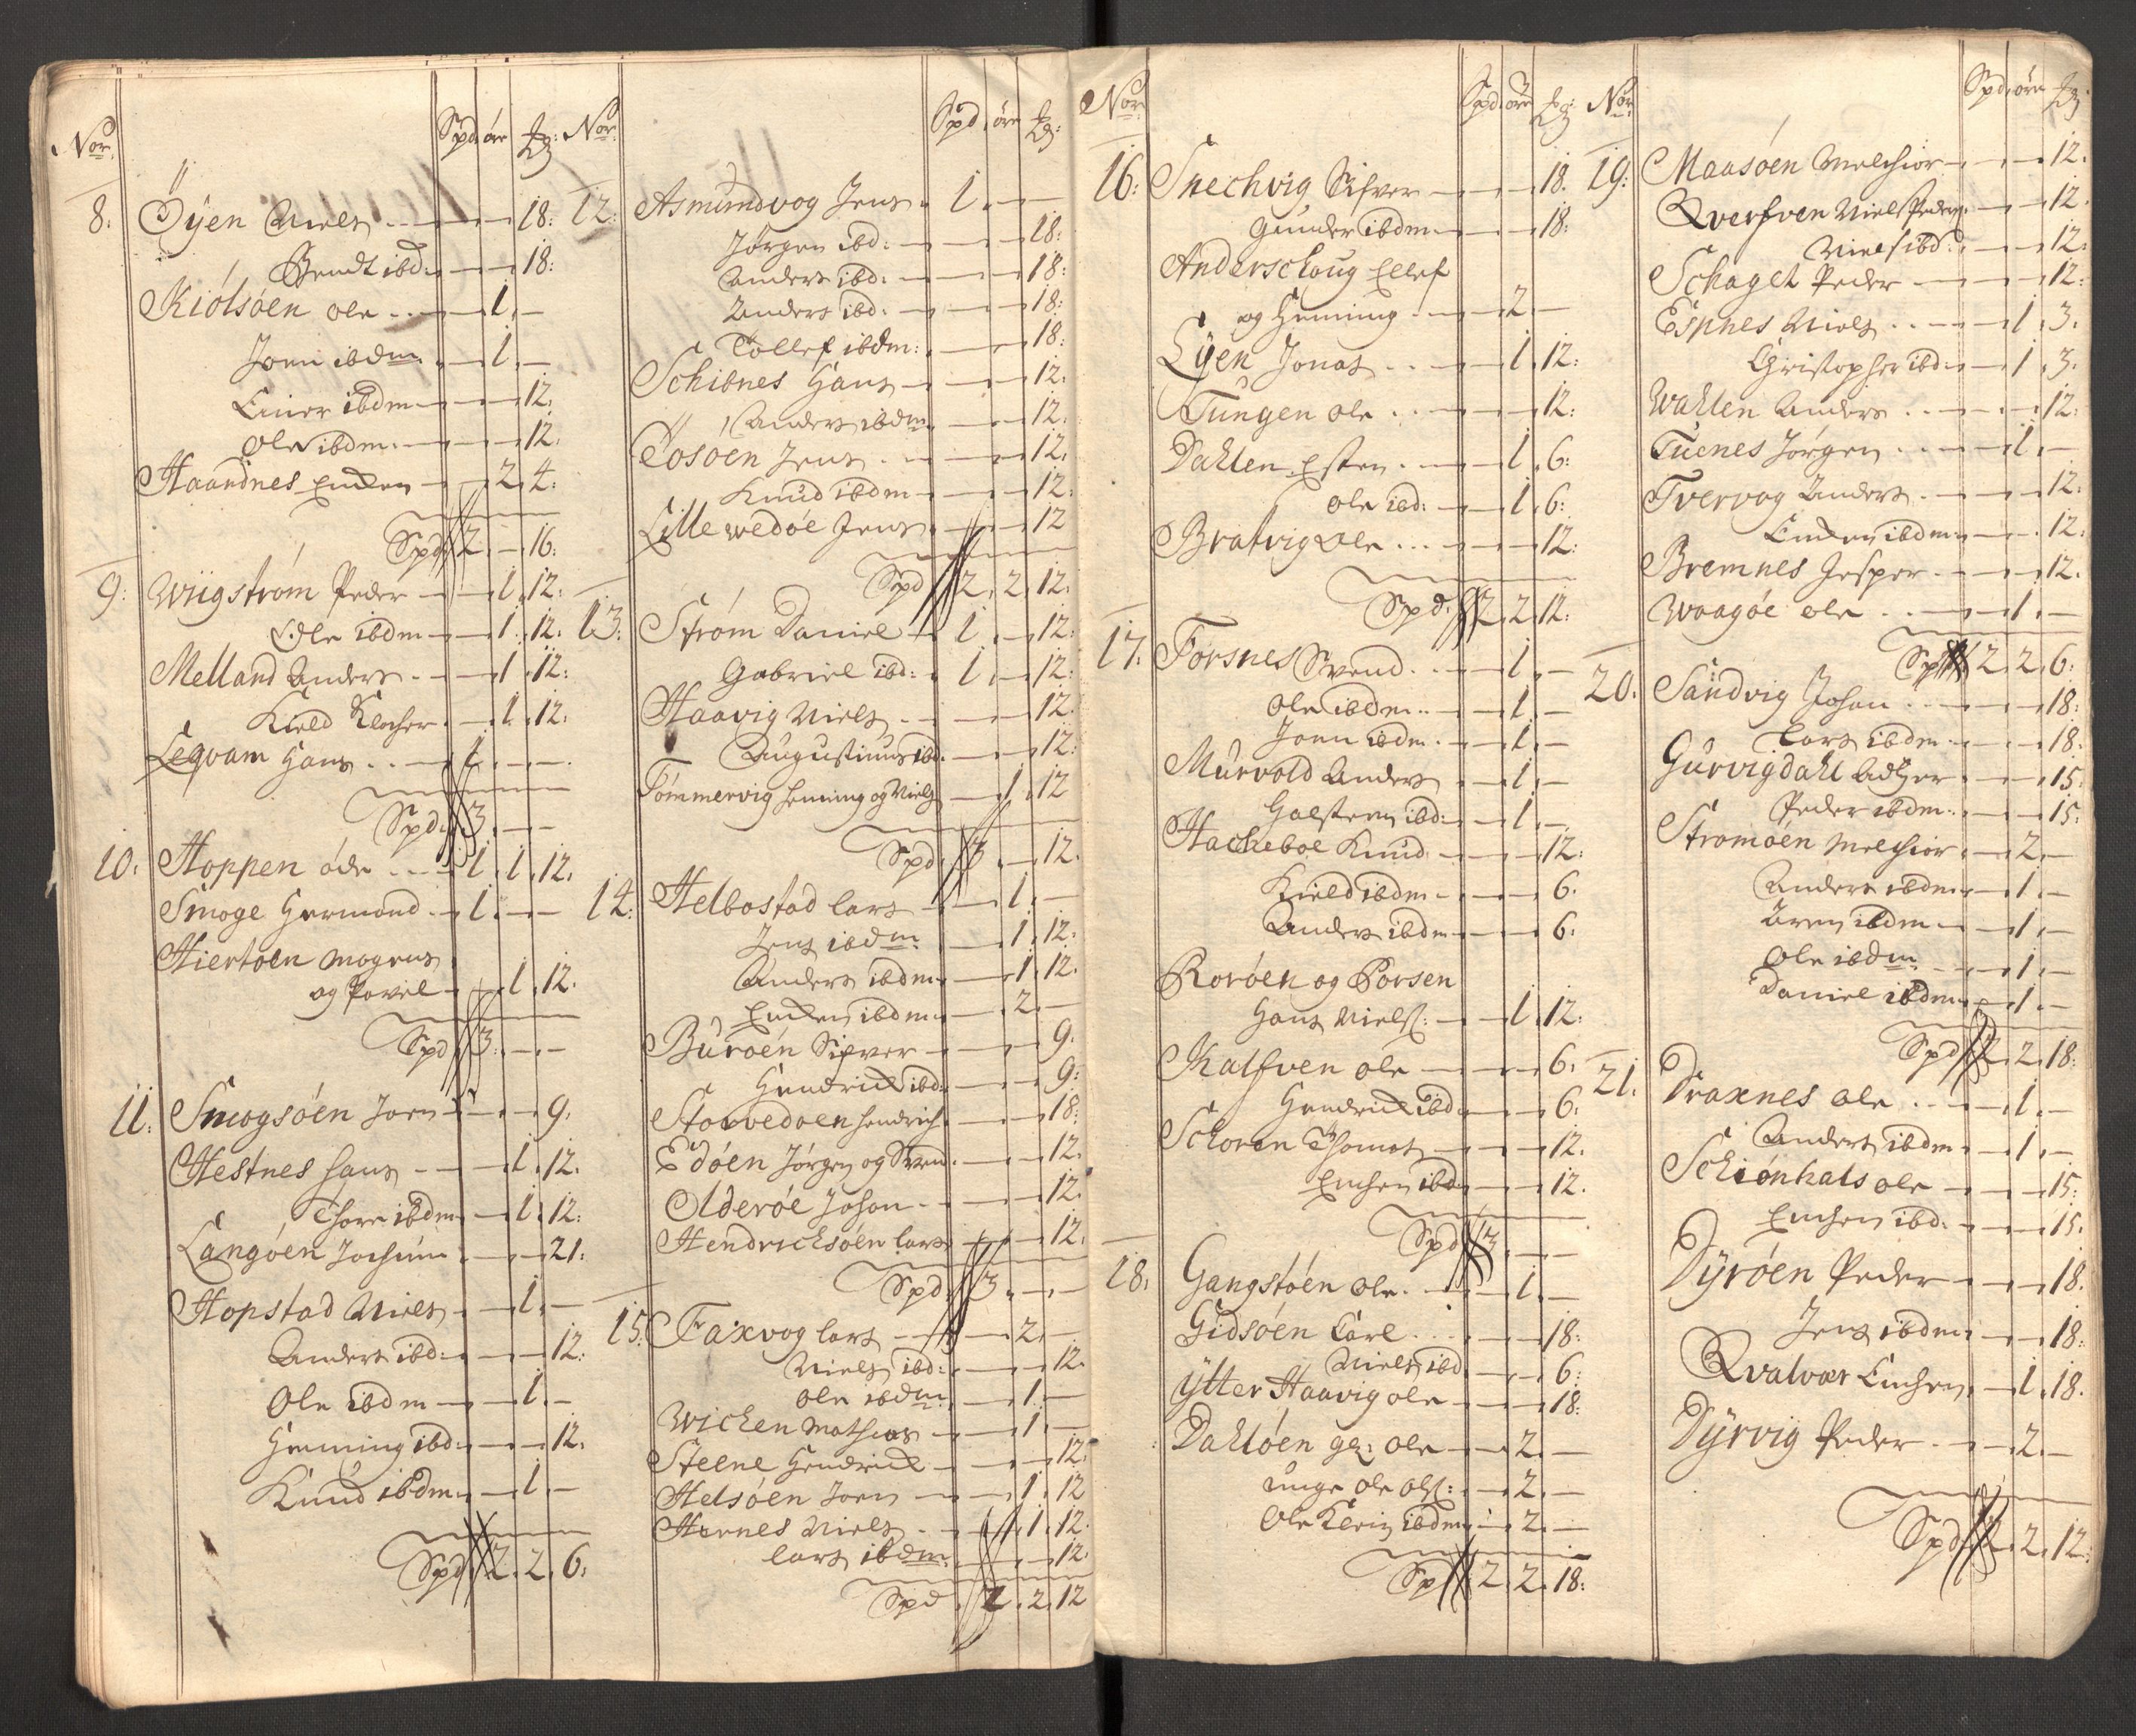 Nor. Spd. öre
8: Öÿen Niels - - - 18:
Bendt ibd: - - - 18:
Kiölsöen Ole - - 1. -
Joen ibdm. - 1. -
Einer ibdm - - - 12.
Ole ibdm. - - - 12.
Haandnes - - 2 4:
Spd. 2. - 16:
9: Wiigström Peder - - 1. 12:
Ole ibdm - - 1. 12:
Melland Anders - - 1. 12:
Kield Klocher. - 1. 12:
Leqvam Hans - - 1. - -
Spd. 3. - -
10. Hoppen Ode - - 1. 1. 12.
Smoge Germond - 1. - -
Hiertöen Mogens
og Povel - - 1. 12.
Spd. 3. - -
11. Smogsöen Joen - - - 9.
Hestnes Hans - - - 1. 12.
Thore ibdm - 1. 12:
Langöen Jochum - - 21.
Hopstad Niels - 1. -
Anders ibd: - - - 12:
Ole ibdm - - 1. -
Heming ibd: - - - 12.
Knud ibdm - - 1. -
Spd. 2. 2. 6:
Nor. Spd. öre
12: Asmundvog Jens. 1. - -
Jörgen ibd: - - - 18:
Anders ibd: - - - 18:
Anders ibd: - - - 18:
Tollef ibdm: - - 18:
Schibnes Hans - - - 12.
Anders ibdm. - - 12.
Tosöen Jens - - - 12.
Knud ibdm - - - 12.
Lille wedöe Jens. - - 12
Spd 2. 2. 12.
13. Ström Daniel - 1. - 12:
Gabriel ibd: - 1. - 12:
Haavig Niels - - - 12.
Augustinus ibd. - - 12:
Tömmervig Heming og Niels - 1. 12
Spd. 3. - 12.
14. Helbostad Lars - - 1. -
Jens ibdm - 1. 12:
Anders ibdm - 1. 12.
ibdm - 2. -
Buröen Sifver - - - 9.
Hendrich ibd: - - 9:
Storvedöen Hendrich - - 18:
Edöen Jörgen og Svend. - - 12.
Olderöe Johan - - - 12.
Hendrichsöen Lars - - 12.
Spd. 3. - -
15. Faxvog Lars - - 2. -
Niels ibd: - - 12.
Ole ibdm - 1. -
Wichen Mathias - - 1. -
Steene Hendrich - - - 12.
Helsöen Joen - - 1. 12
Hernes Niels - - 1. 12.
Lars ibdm. - - 12.
Spd. 2. 2. 12
Nor. Spd. öre
16: Snechvig Sifver - - - 18.
Gunder ibdm - - - 18:
Anderschoug Ellef
og Heming - - 2. -
Lÿen Jonas - - 1. 12:
Tungen Ole - - - 12:
Dahlen Esten - - 1. 6:
Ole ibd: - 1. 6:
Bratvig Ole - - - 12:
Spd. 2. 2. 12:
17. Forsnes Svend - - 1. -
Ole ibdm - - 1. -
Joen ibdm - - 1. -
Murvold Anders - 1. -
Halsten ibd: - 1. -
Hacheboe Knud - - - 12:
Kield ibdm - - - 6.
Anders ibdm - - - 6:
Roröen og Porsen
Hans Niels: - - 1. 12:
Kalfven Ole - - - 6.
Hendrich ibd. - - 6:
Schoren Thomas - - - 12.
ibd - - 12.
Spd 3. - -
18. Gangstöen Ole. - - 1. -
Gidsöen Carl - - - 18:
Niels ibd. - - 6:
ÿtter Haavig Ole - - - 18:
Dahlöen gl: Ole - - 2. -
unge Ole Ols: - 2. -
Ole ibdm - 2. -
Sp 2. 2. 18:
Nor. Spd. öre
19: Maasöen Melchior - - - 12.
Qverfven Niels Peders. - - 12.
Niels ibd. - - 12:
Schaget Peder - - - 12:
Espnes Niels - - - 1. 3.
Christopher ibd: - 1. 3.
Wahlen Anders - - - 12:
Tuenes Jörgen - - - 1. -
Tvervog Anders - - - 12:
ibdm - - 12:
Bremnes Jesper - - - 12.
Waagöe Ole - - - 1. -
Sp 2. 2. 6:
20. Sandvig Johan - - - 18:
Lars ibdm - - - 18.
Gurvigdahl - - 15.
Peder ibdm. - - - 15:
Stromöen Melchior - - 2. -
Anders ibdm - 1. -
ibdm - - 1. -
Ole ibdm - - 1. -
Daniel ibdm - 1. -
Spd 2. 2. 18:
21. Draxnes Ole - - - 1. -
Anders ibdm - 1. -
Schiönhals Ole - - - 15:
ibd. - - - 15.
Dÿröen Peder - - - 18.
Jens ibdm - - 18:
Qvalvær - 1. 18.
Dÿrvig Peder - - 2. -
Spd 2. 2. 12: